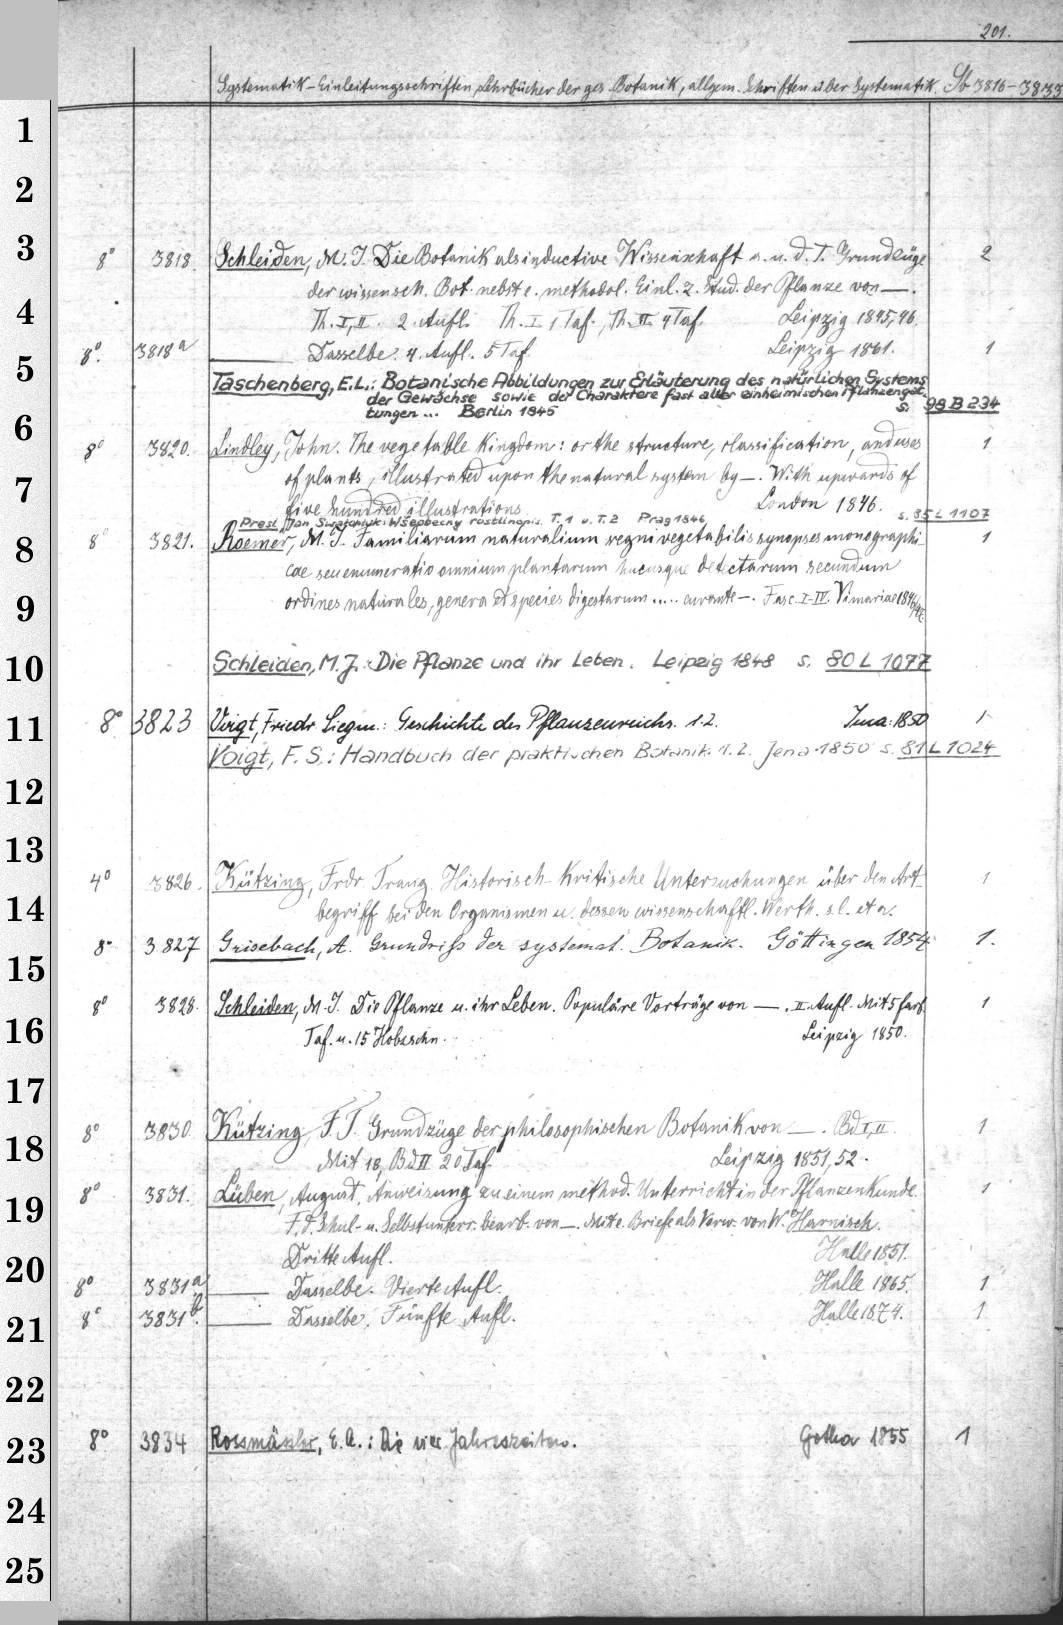 201.
Systematik-Einleitungsschriften, Lehrbücher der ges. Botanik, allgem. Schriften über Systematik. Sb 3816-3833
1
2
3
8° 3818 Schleiden, M. J. Die Botanik als inductive Wissenschaft a. u. d. T. Grundzüge 2
der wissensch. Bot. nebst e. methodol. Einl. z. Stud. der Pflanze von —.
4
Th. I, II. 2. Aufl. Th. I 1 Taf., Th. II 4 Taf. Leipzig 1845, 46.
5
8°. 3818a —— Dasselbe. 4. Aufl. 5 Taf. Leipzig 1861. 1
Taschenberg, E.L.: Botanische Abbildungen zur Erläuterung des natürlichen Systems
der Gewächse sowie der Charaktere fast aller einheimischen Pflanzengat-
tungen... Berlin 1845 s. 98 B 234
6
8° 3820. Lindley, John. The vegetable Kingdom: or the structure, classification, and uses 1
of plants, illustrated upon the natural system by —. With upwards of
7
five hundred illustrations. London 1846.
Presl, Jan Swatopluk: Wšeobecný rostlinopis. T. 1 u. T. 2 Prag 1846 s. 85 L 1107
8
8° 3821. Roemer, M. J. Familiarum naturalium regni vegetabilis synopses monographi- 1
cae seu enumeratio omnium plantarum hucusque detectarum secundum
9
ordines naturales, genera et species digestarum ..... curante —. Fasc. I-IV. Vimariae 1846/47.
10
Schleiden, M. J.: Die Pflanze und ihr Leben. Leipzig 1848 s. 80 L 1077
11
8° 3823 Voigt, Friedr. Siegm.: Geschichte des Pflanzenreichs. 1.2. Jena: 1850 1
Voigt, F. S.: Handbuch der praktischen Botanik. 1.2. Jena 1850 s. 81 L 1024
12
13
14
4° 3826. Kützing, Frdr. Traug. Historisch-Kritische Untersuchungen über den Art- 1
begriff bei den Organismen u. dessen wissenschaftl. Werth. s. l. et a.
15
8° 3827 Grisebach, A. Grundriß der systemat. Botanik. Göttingen 1854 1.
16
8° 3828. Schleiden, M. J. Die Pflanze u. ihr Leben. Populäre Vorträge von —. II. Aufl. Mit 5 farb. 1
Taf. u. 15 Holzschn. Leipzig 1850.
17
18
8° 3830 Kützing, F. T. Grundzüge der philosophischen Botanik von —. Bd I, II 1
Mit 18, Bd II 20 Taf. Leipzig 1851, 52.
19
8° 3831. Lüben, August. Anweisung zu einem method. Unterricht in der Pflanzenkunde. 1
F. d. Schul- u. Selbstunterr. bearb. von —. Mit e. Briefe als Vorw. von W. Harnisch.
20
Dritte Aufl. Halle 1851.
8° 3831a —— Dasselbe. Vierte Aufl. Halle 1865. 1
21
8° 3831b. —— Dasselbe. Fünfte Aufl. Halle 1874. 1
22
23
8° 3834 Rossmässler, E. A.: Die vier Jahreszeiten. Gotha 1855 1
24
25